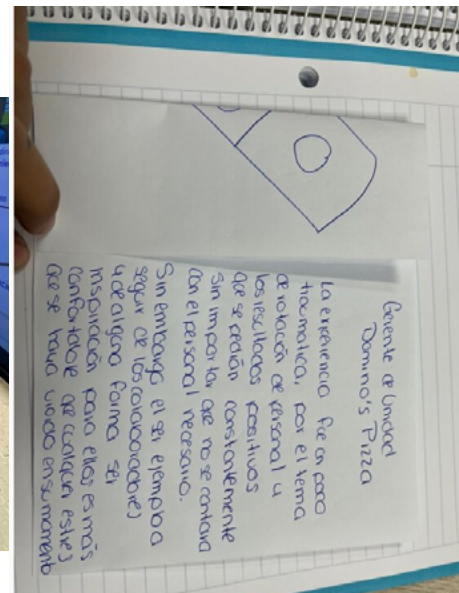 Gerente de Unidad
Domino's Pizza
La experiencia fue un poco
traumatica, por el tema
de rotación de personal y
los resultados positivos
que se pedían constantemente
sin importar que no se contara
con el personal necesario.
Sin embargo el ser ejemplo a
seguir de los colaboradores
y de alguna forma ser
inspiración para ellos es más
confortable que cualquier estrés
que se haya vivido en su momento